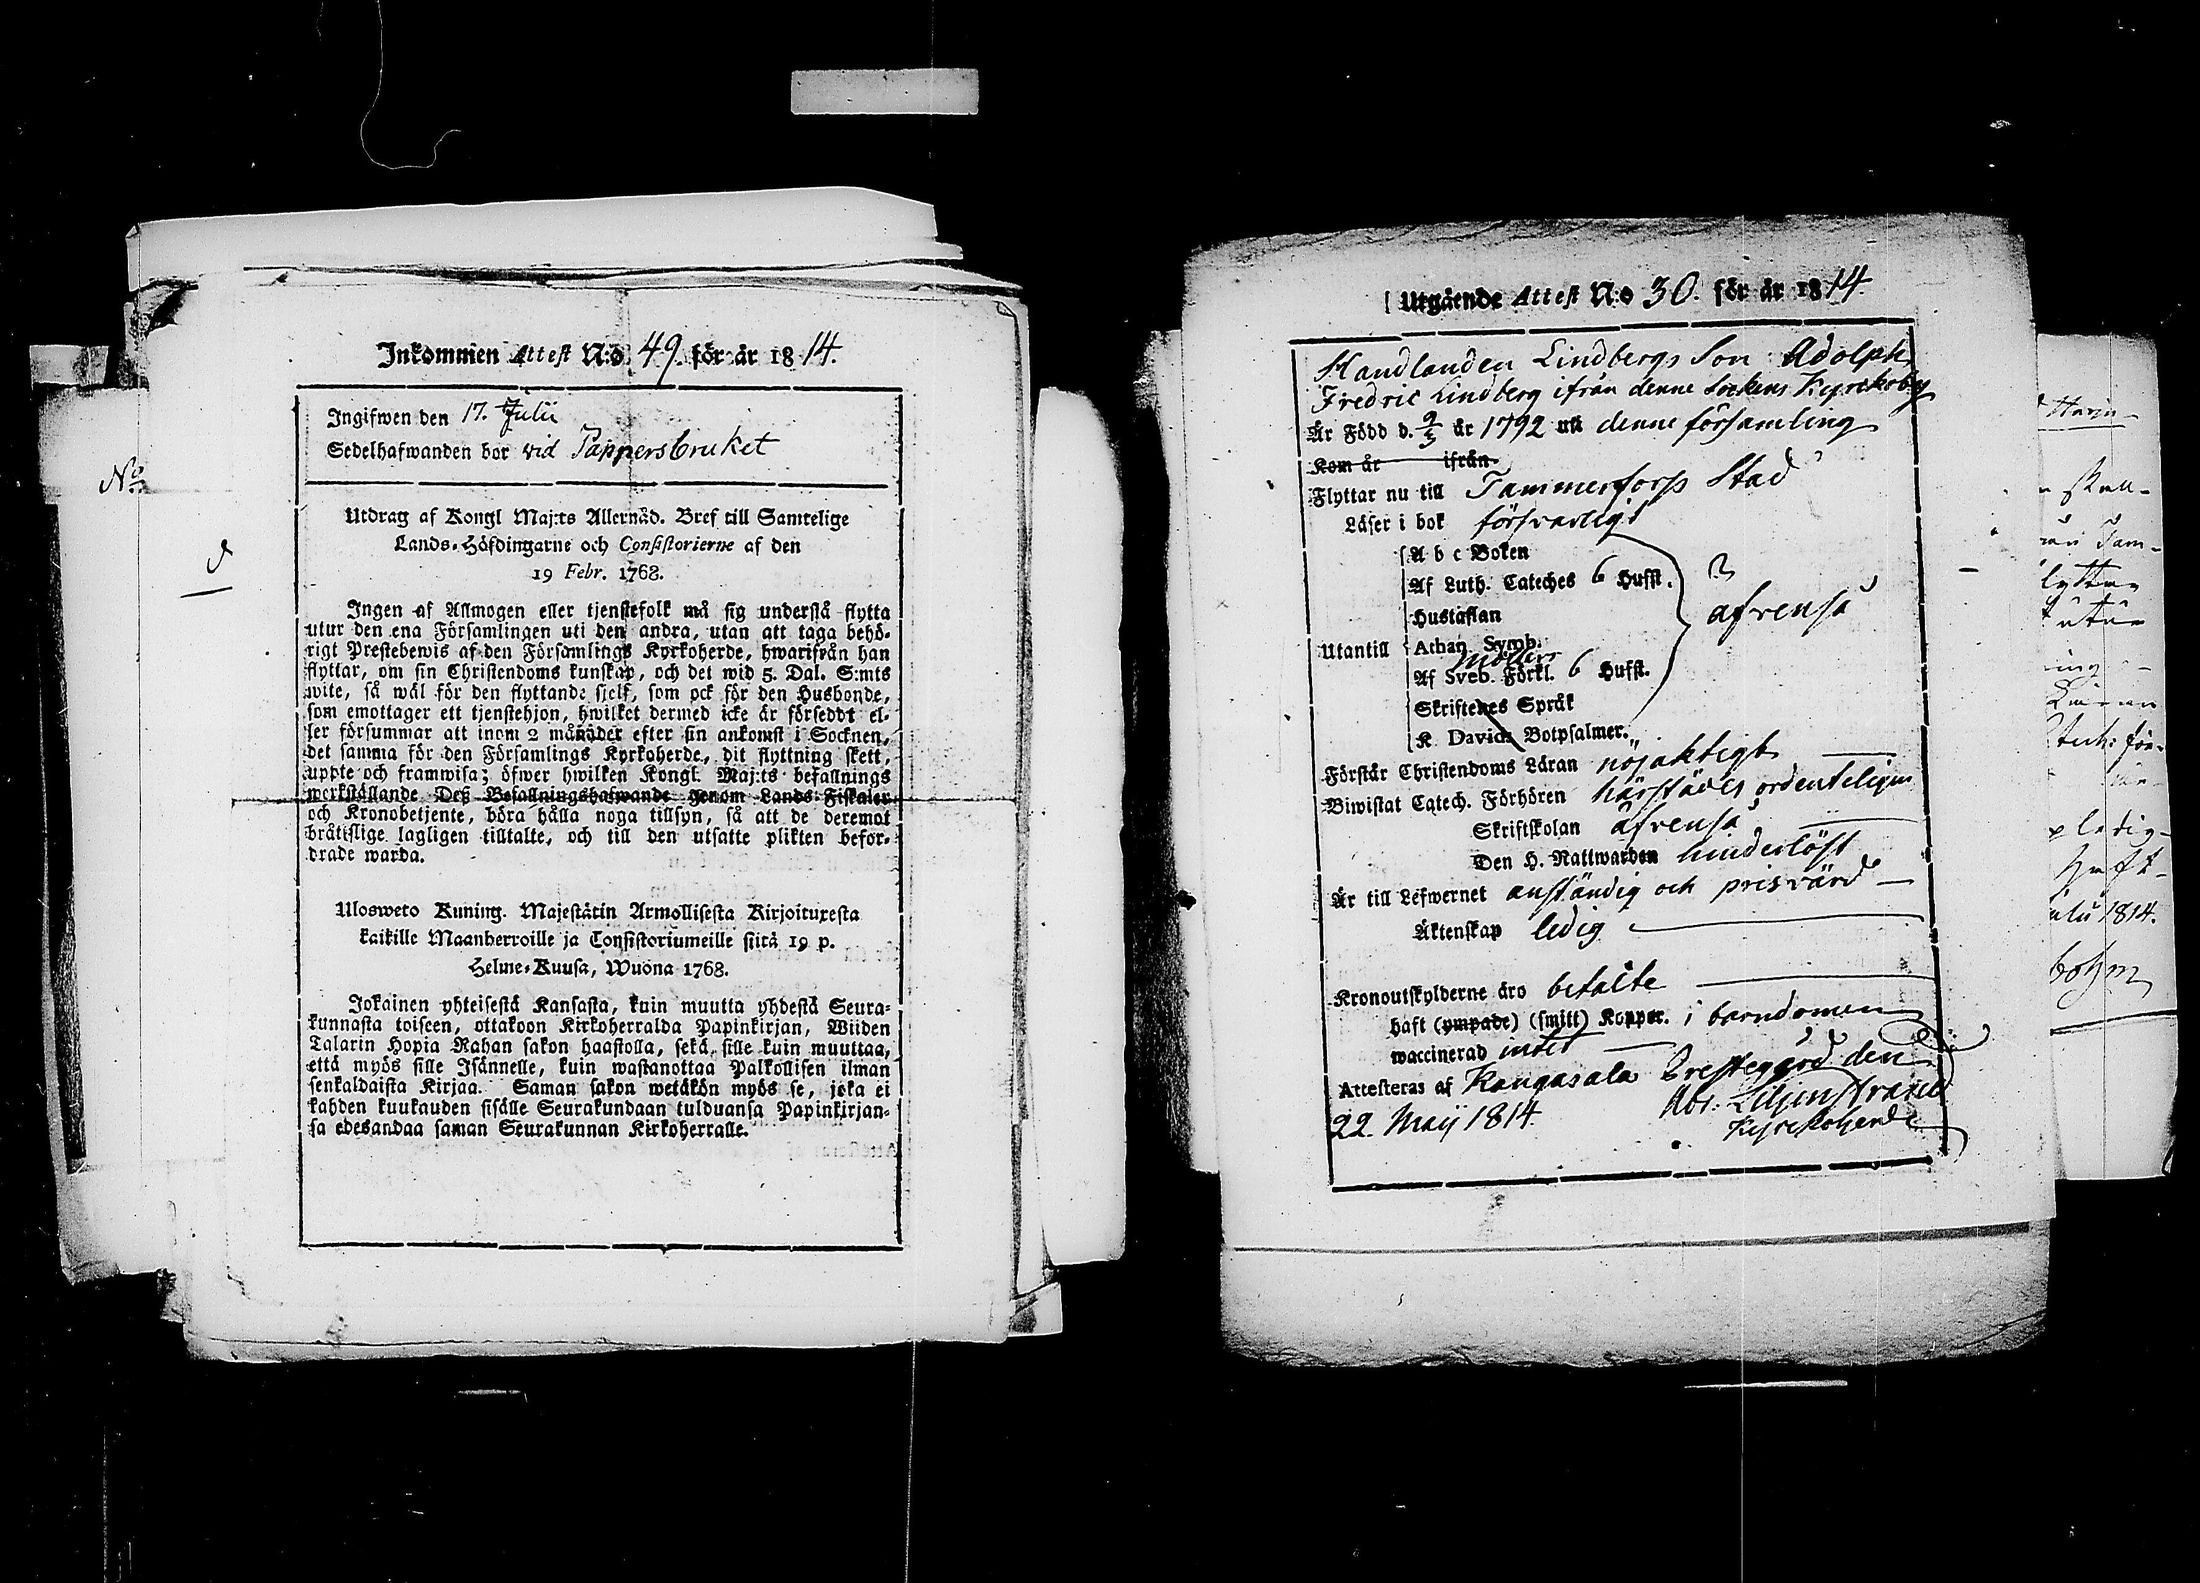 Inkommen Attest N:o 49. för år 1814.
Ingifwen den 17. Julii
Sedelhafwanden bor vid Pappersbruket
No
Utdrag af Kongl Maj:ts Allernåd. Bref till Samtelige
Lands-Höfdingarne och Consistorierne af den
19 Febr. 1768.
Ingen af Allmogen eller tjenstefolk må sig understå flytta
utur den ena Församlingen uti den andra, utan att taga behö-
rigt Prestebewis af den Församlings Kyrkoherde, hwarifrån han
flyttar, om sin Christendoms kunskap, och det wid 5. Dal. S:mts
wite, så wäl för den flyttande sjelf, som ock för den Husbonde,
som emottager ett tjenstehjon, hwilket dermed icke är förseddt el-
ler försummar att inom 2 månader efter sin ankomst i Socknen,
det samma för den Församlings Kyrkoherde, dit flyttning skett,
uppte och framwisa; öfwer hwilken Kongl. Maj:ts befallnings
werkställande Deß Befallningshafwande genom Lands-Fiskaler
och Kronobetjente, böra hålla noga tillsyn, så att de deremot
brätislige lagligen tilltalte, och till den utsatte plikten befor-
drade warda.
Ulosweto Kuning. Majestätin Armollisesta Kirjoituxesta
kaikille Maanherroille ja Consistoriumeille siitä 19 p.
Helme-Kuusa, Wuona 1768.
Jokainen yhteisestä Kansasta, kuin muutta yhdestä Seura-
kunnasta toiseen, ottakoon Kirkoherralda Papinkirjan, Wiiden
Talarin Hopia Rahan sakon haastolla, sekä sille kuin muuttaa,
että myös sille Isännelle, kuin wastanottaa Palkollisen ilman
senkaldaista Kirjaa. Saman sakon wetäkön myös se, joka ei
kahden kuukauden sisälle Seurakundaan tulduansa Papinkirjan-
sa edesandaa saman Seurakunnan Kirkoherralle.
Utgående Attest N:o 30. för år 1814.
Handlanden Lindbergs Son Adolph
Fredric Lindberg ifrån denne Sockens Kyrckoby
Är Född d. 9/5 år 1792 uti denne församling
Kom år ifrån
Flyttar nu till Tammerfors Stad
Läser i bok försvarligt
A b c Boken
Af Luth. Cateches 6 Hufst.
Hustaflan
afrensa
Utantill Athan. Symb.
Möllers
Af Sveb. Förkl. 6 Hufst.
Skriftenes Språk
K Davids Botpsalmer.
Förstår Christendoms Läran nöjaktigt
Biwistat Catech. Förhören härstädes ordenteligen
Skriftskolan afrensa
Den H. Nattwarden hinderlöst
Är till Lefwernet anständig och prisvärd
Äktenskap ledig
Kronoutskylderne äro betalte
haft (ympade) (smitt) Koppor. i barndomen
waccinerad intet
Attesteras af Kangasala Prestegård den
22. Maij 1814.
Abr: Liljenstrand
Kyrckoherde
1814.